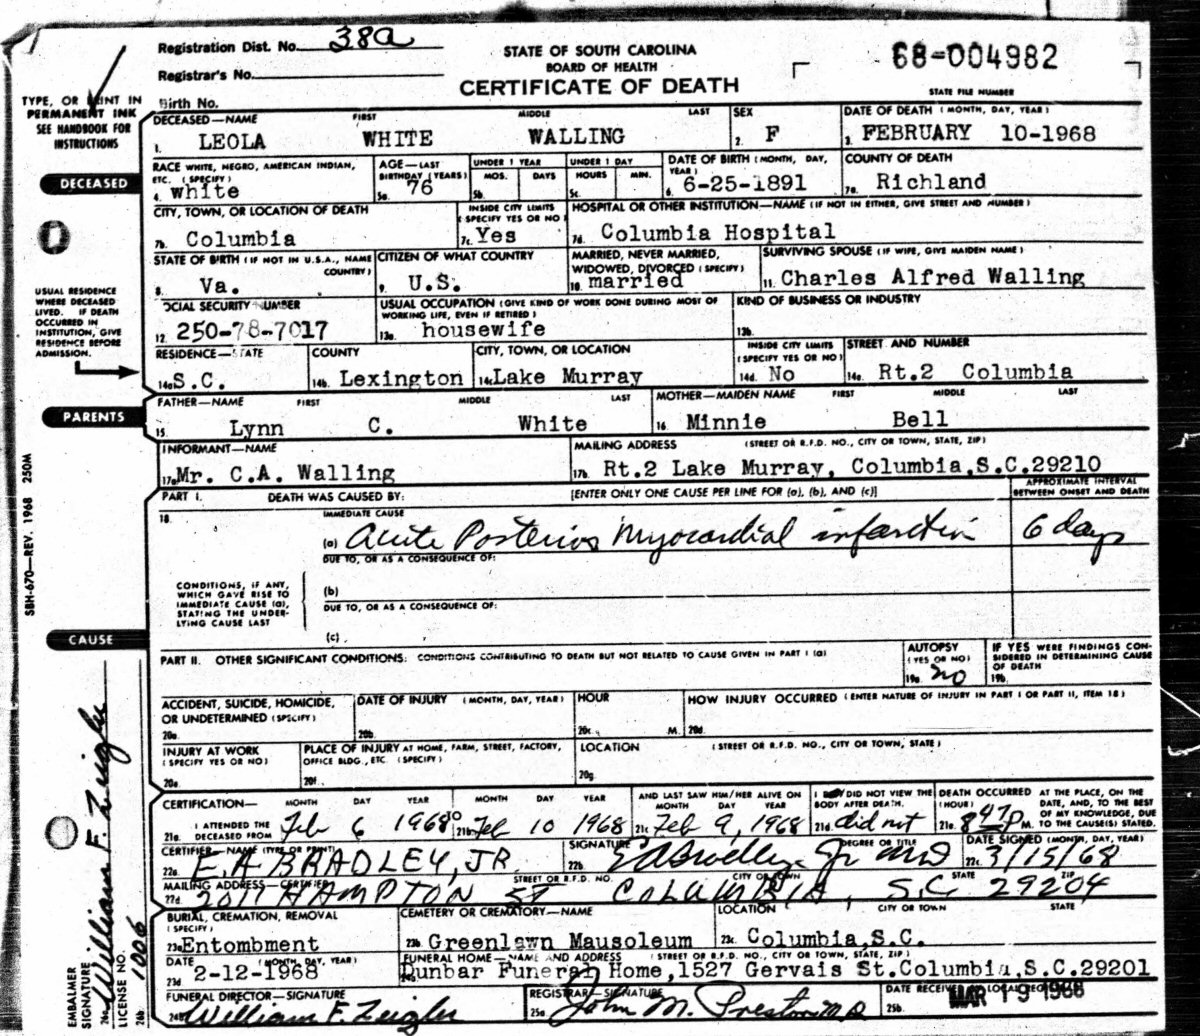 Registration Dist. No. 38a
STATE OF SOUTH CAROLINA
BOARD OF HEALTH
68-004982
Registrar's No.
CERTIFICATE OF DEATH
STATE FILE NUMBER
Birth No.
TYPE, OR PRINT IN
PERMANENT INK
SEE HANDBOOK FOR
INSTRUCTIONS
DECEASED—NAME FIRST MIDDLE LAST SEX DATE OF DEATH (MONTH, DAY, YEAR)
1. LEOLA WHITE WALLING 2. F 3. FEBRUARY 10-1968
DECEASED
RACE WHITE, NEGRO, AMERICAN INDIAN, ETC. (SPECIFY) AGE—LAST BIRTHDAY (YEARS) UNDER 1 YEAR MOS. DAYS UNDER 1 DAY HOURS MIN. DATE OF BIRTH (MONTH, DAY, YEAR) COUNTY OF DEATH
4. white 5a. 76 5b. 5c. 6. 6-25-1891 7a. Richland
CITY, TOWN, OR LOCATION OF DEATH INSIDE CITY LIMITS (SPECIFY YES OR NO) HOSPITAL OR OTHER INSTITUTION—NAME (IF NOT IN EITHER, GIVE STREET AND NUMBER)
7b. Columbia 7c. Yes 7d. Columbia Hospital
STATE OF BIRTH (IF NOT IN U.S.A., NAME COUNTRY) CITIZEN OF WHAT COUNTRY MARRIED, NEVER MARRIED, WIDOWED, DIVORCED (SPECIFY) SURVIVING SPOUSE (IF WIFE, GIVE MAIDEN NAME)
8. Va. 9. U.S. 10. married 11. Charles Alfred Walling
USUAL RESIDENCE
WHERE DECEASED
LIVED. IF DEATH
OCCURRED IN
INSTITUTION, GIVE
RESIDENCE BEFORE
ADMISSION.
OCIAL SECURITY NUMBER USUAL OCCUPATION (GIVE KIND OF WORK DONE DURING MOST OF WORKING LIFE, EVEN IF RETIRED) KIND OF BUSINESS OR INDUSTRY
12. 250-78-7017 13a. housewife 13b.
RESIDENCE—STATE COUNTY CITY, TOWN, OR LOCATION INSIDE CITY LIMITS (SPECIFY YES OR NO) STREET AND NUMBER
14a S.C. 14b. Lexington 14c Lake Murray 14d. No 14e. Rt.2 Columbia
PARENTS
FATHER—NAME FIRST MIDDLE LAST MOTHER—MAIDEN NAME FIRST MIDDLE LAST
15. Lynn C. White 16. Minnie Bell
INFORMANT—NAME MAILING ADDRESS (STREET OR R.F.D. NO., CITY OR TOWN, STATE, ZIP)
17a Mr. C.A. Walling 17b. Rt.2 Lake Murray, Columbia,S.C.29210
SBH-670—REV. 1968 250M
PART I. DEATH WAS CAUSED BY: [ENTER ONLY ONE CAUSE PER LINE FOR (a), (b), AND (c)] APPROXIMATE INTERVAL BETWEEN ONSET AND DEATH
18 IMMEDIATE CAUSE
(a) Acute Posterior Myocardial infarction 6 days
DUE TO, OR AS A CONSEQUENCE OF:
CONDITIONS, IF ANY,
WHICH GAVE RISE TO
IMMEDIATE CAUSE (a),
STATING THE UNDER-
LYING CAUSE LAST
(b)
DUE TO, OR AS A CONSEQUENCE OF:
(c)
CAUSE
PART II. OTHER SIGNIFICANT CONDITIONS: CONDITIONS CONTRIBUTING TO DEATH BUT NOT RELATED TO CAUSE GIVEN IN PART I (a) AUTOPSY (YES OR NO) IF YES WERE FINDINGS CONSIDERED IN DETERMINING CAUSE OF DEATH
19a. no 19b.
ACCIDENT, SUICIDE, HOMICIDE, OR UNDETERMINED (SPECIFY) DATE OF INJURY (MONTH, DAY, YEAR) HOUR HOW INJURY OCCURRED (ENTER NATURE OF INJURY IN PART I OR PART II, ITEM 18)
20a. 20b. 20c. M. 20d.
INJURY AT WORK (SPECIFY YES OR NO) PLACE OF INJURY AT HOME, FARM, STREET, FACTORY, OFFICE BLDG., ETC. (SPECIFY) LOCATION (STREET OR R.F.D. NO., CITY OR TOWN, STATE)
20e. 20f. 20g.
CERTIFICATION— MONTH DAY YEAR MONTH DAY YEAR AND LAST SAW HIM/HER ALIVE ON MONTH DAY YEAR I DID NOT VIEW THE BODY AFTER DEATH. DEATH OCCURRED (HOUR) AT THE PLACE, ON THE DATE, AND, TO THE BEST OF MY KNOWLEDGE, DUE TO THE CAUSE(S) STATED.
21a. I ATTENDED THE DECEASED FROM Feb 6 1968 TO 21b. Feb 10 1968 21c Feb 9, 1968 21d did not 21e. 8 47 P M.
CERTIFIER—NAME (TYPE OR PRINT) SIGNATURE DEGREE OR TITLE DATE SIGNED (MONTH, DAY, YEAR)
22a. E. A BRADLEY, JR 22b. E A Bradley Jr MD 22c. 3/15/68
MAILING ADDRESS—CERTIFIER STREET OR R.F.D. NO. CITY OR TOWN STATE ZIP
22d. 2011 HAMPTON ST COLUMBIA, S.C 29204
BURIAL, CREMATION, REMOVAL (SPECIFY) CEMETERY OR CREMATORY—NAME LOCATION CITY OR TOWN STATE
23a Entombment 23b Greenlawn Mausoleum 23c. Columbia,S.C.
DATE (MONTH, DAY, YEAR) FUNERAL HOME—NAME AND ADDRESS (STREET OR R.F.D. NO., CITY OR TOWN, STATE, ZIP)
23d 2-12-1968 Dunbar Funeral Home,1527 Gervais St.Columbia,S.C.29201
FUNERAL DIRECTOR—SIGNATURE REGISTRAR—SIGNATURE DATE RECEIVED LOCAL REG
William F. Zeigler 25a. John M. Preston M.D 25b. MAR 19 1968
EMBALMER SIGNATURE William F. Zeigler
LICENSE NO. 1006